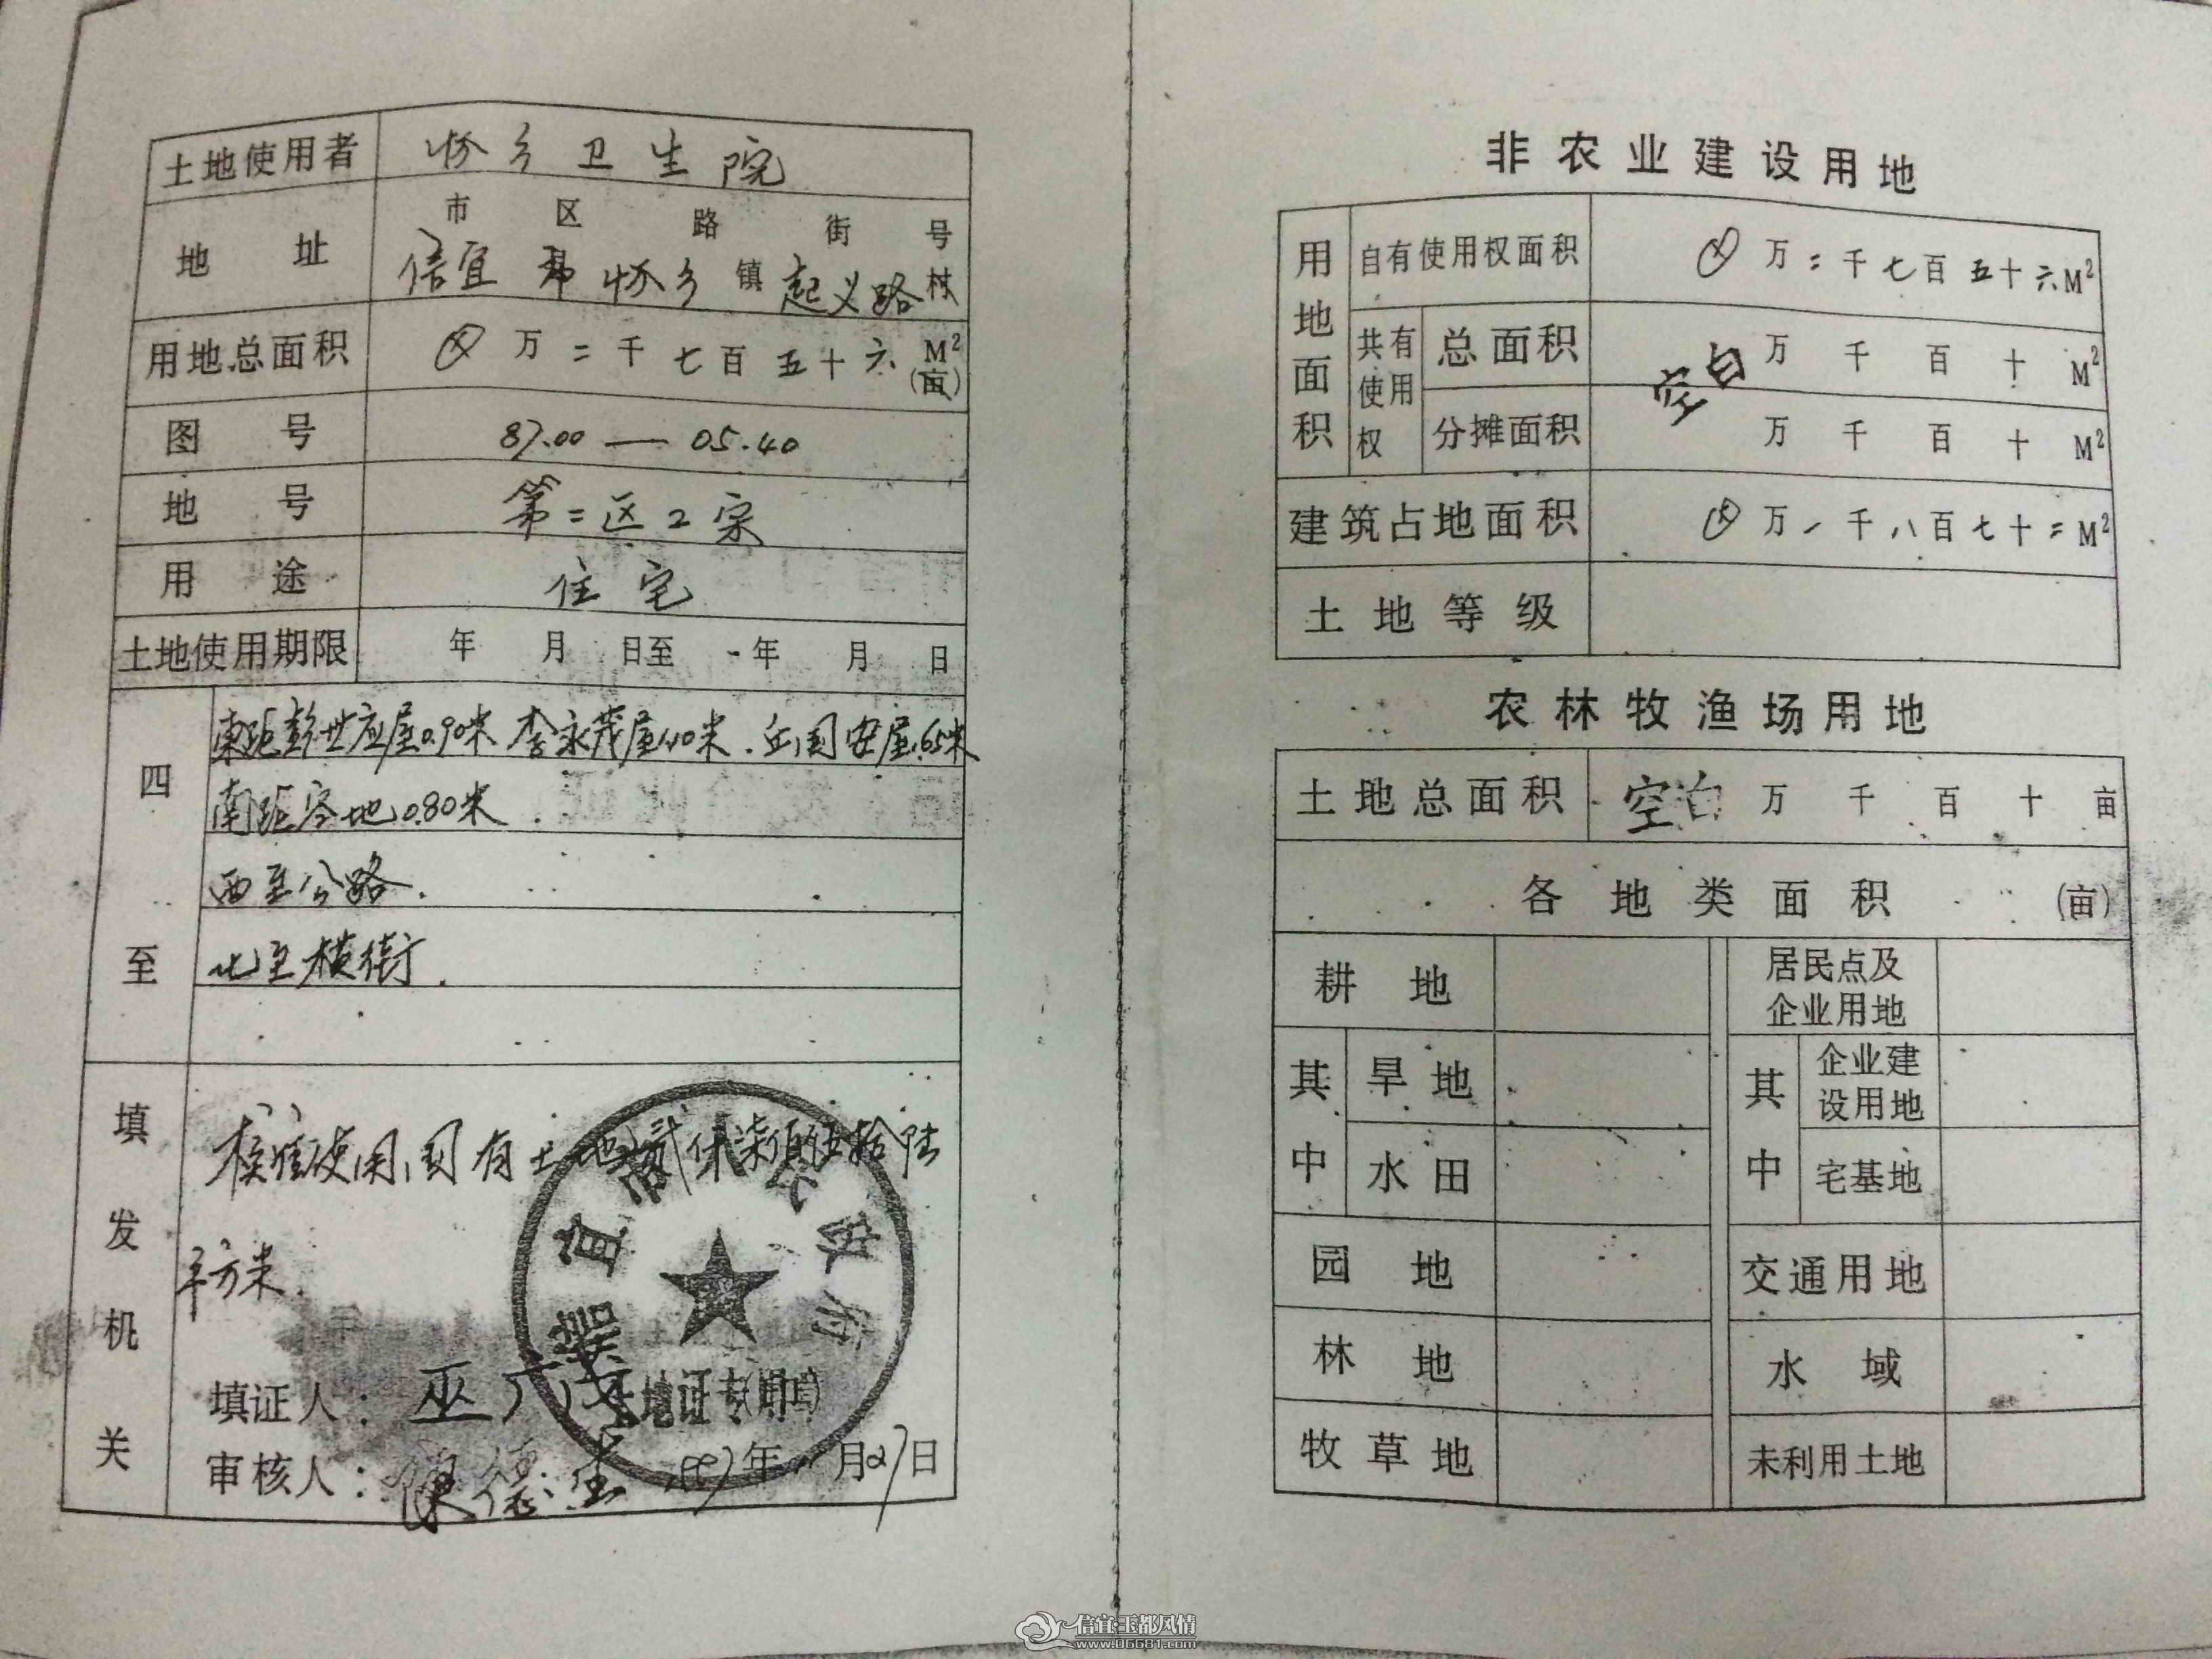 土地使用者 怀乡卫生院
市 区 路 街 号
地址 信宜 怀乡 镇 起义路 村
用地总面积 ⊗万二千七百五十六 M²
(亩)
图号 87.00 — 05.40
地号 第二区2宗
用途 住宅
土地使用期限 年 月 日至 年 月 日
四至
东距彭世应屋0.90米 李永茂屋1.10米. 丘国安屋1.65米
南距空地0.80米
西至公路.
北至横街.
填发机关
核准使用国有土地贰仟柒佰伍拾陆
平方米.
宜 政府
土地证专用章
填证人: 巫
审核人: 陈德 年 月27日
非农业建设用地
用地面积
自有使用权面积 ⊗万二千七百五十六M²
共有使用权
总面积 空白 万 千 百 十 M²
分摊面积 万 千 百 十 M²
建筑占地面积 ⊗万一千八百七十二M²
土地等级
农林牧渔场用地
土地总面积 空白 万 千 百 十 亩
各地类面积 (亩)
耕地 居民点及
企业用地
其中 旱地 其中 企业建
设用地
水田 宅基地
园地 交通用地
林地 水域
牧草地 未利用土地
信宜·玉都风情
www.06681.com